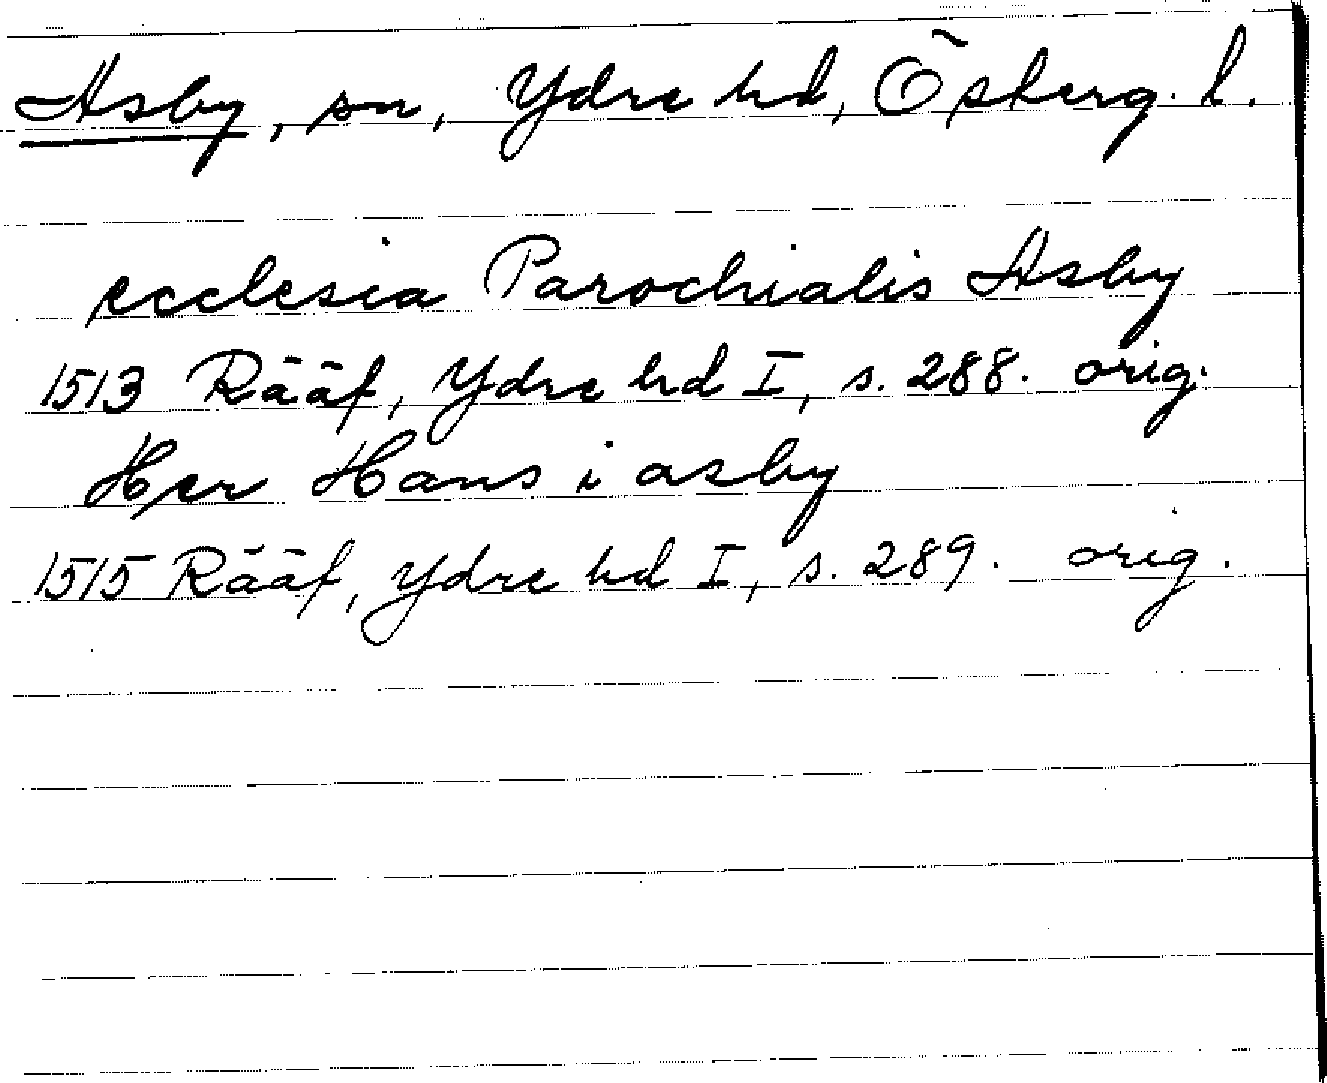 Asby, sn, Ydre hd, Österg. l.
ecclesia Parochialis Asby
1513 Rääf, Ydre hd I, s. 288. orig.
Her Hans i asby
1515 Rääf, Ydre hd I, s. 289. orig.